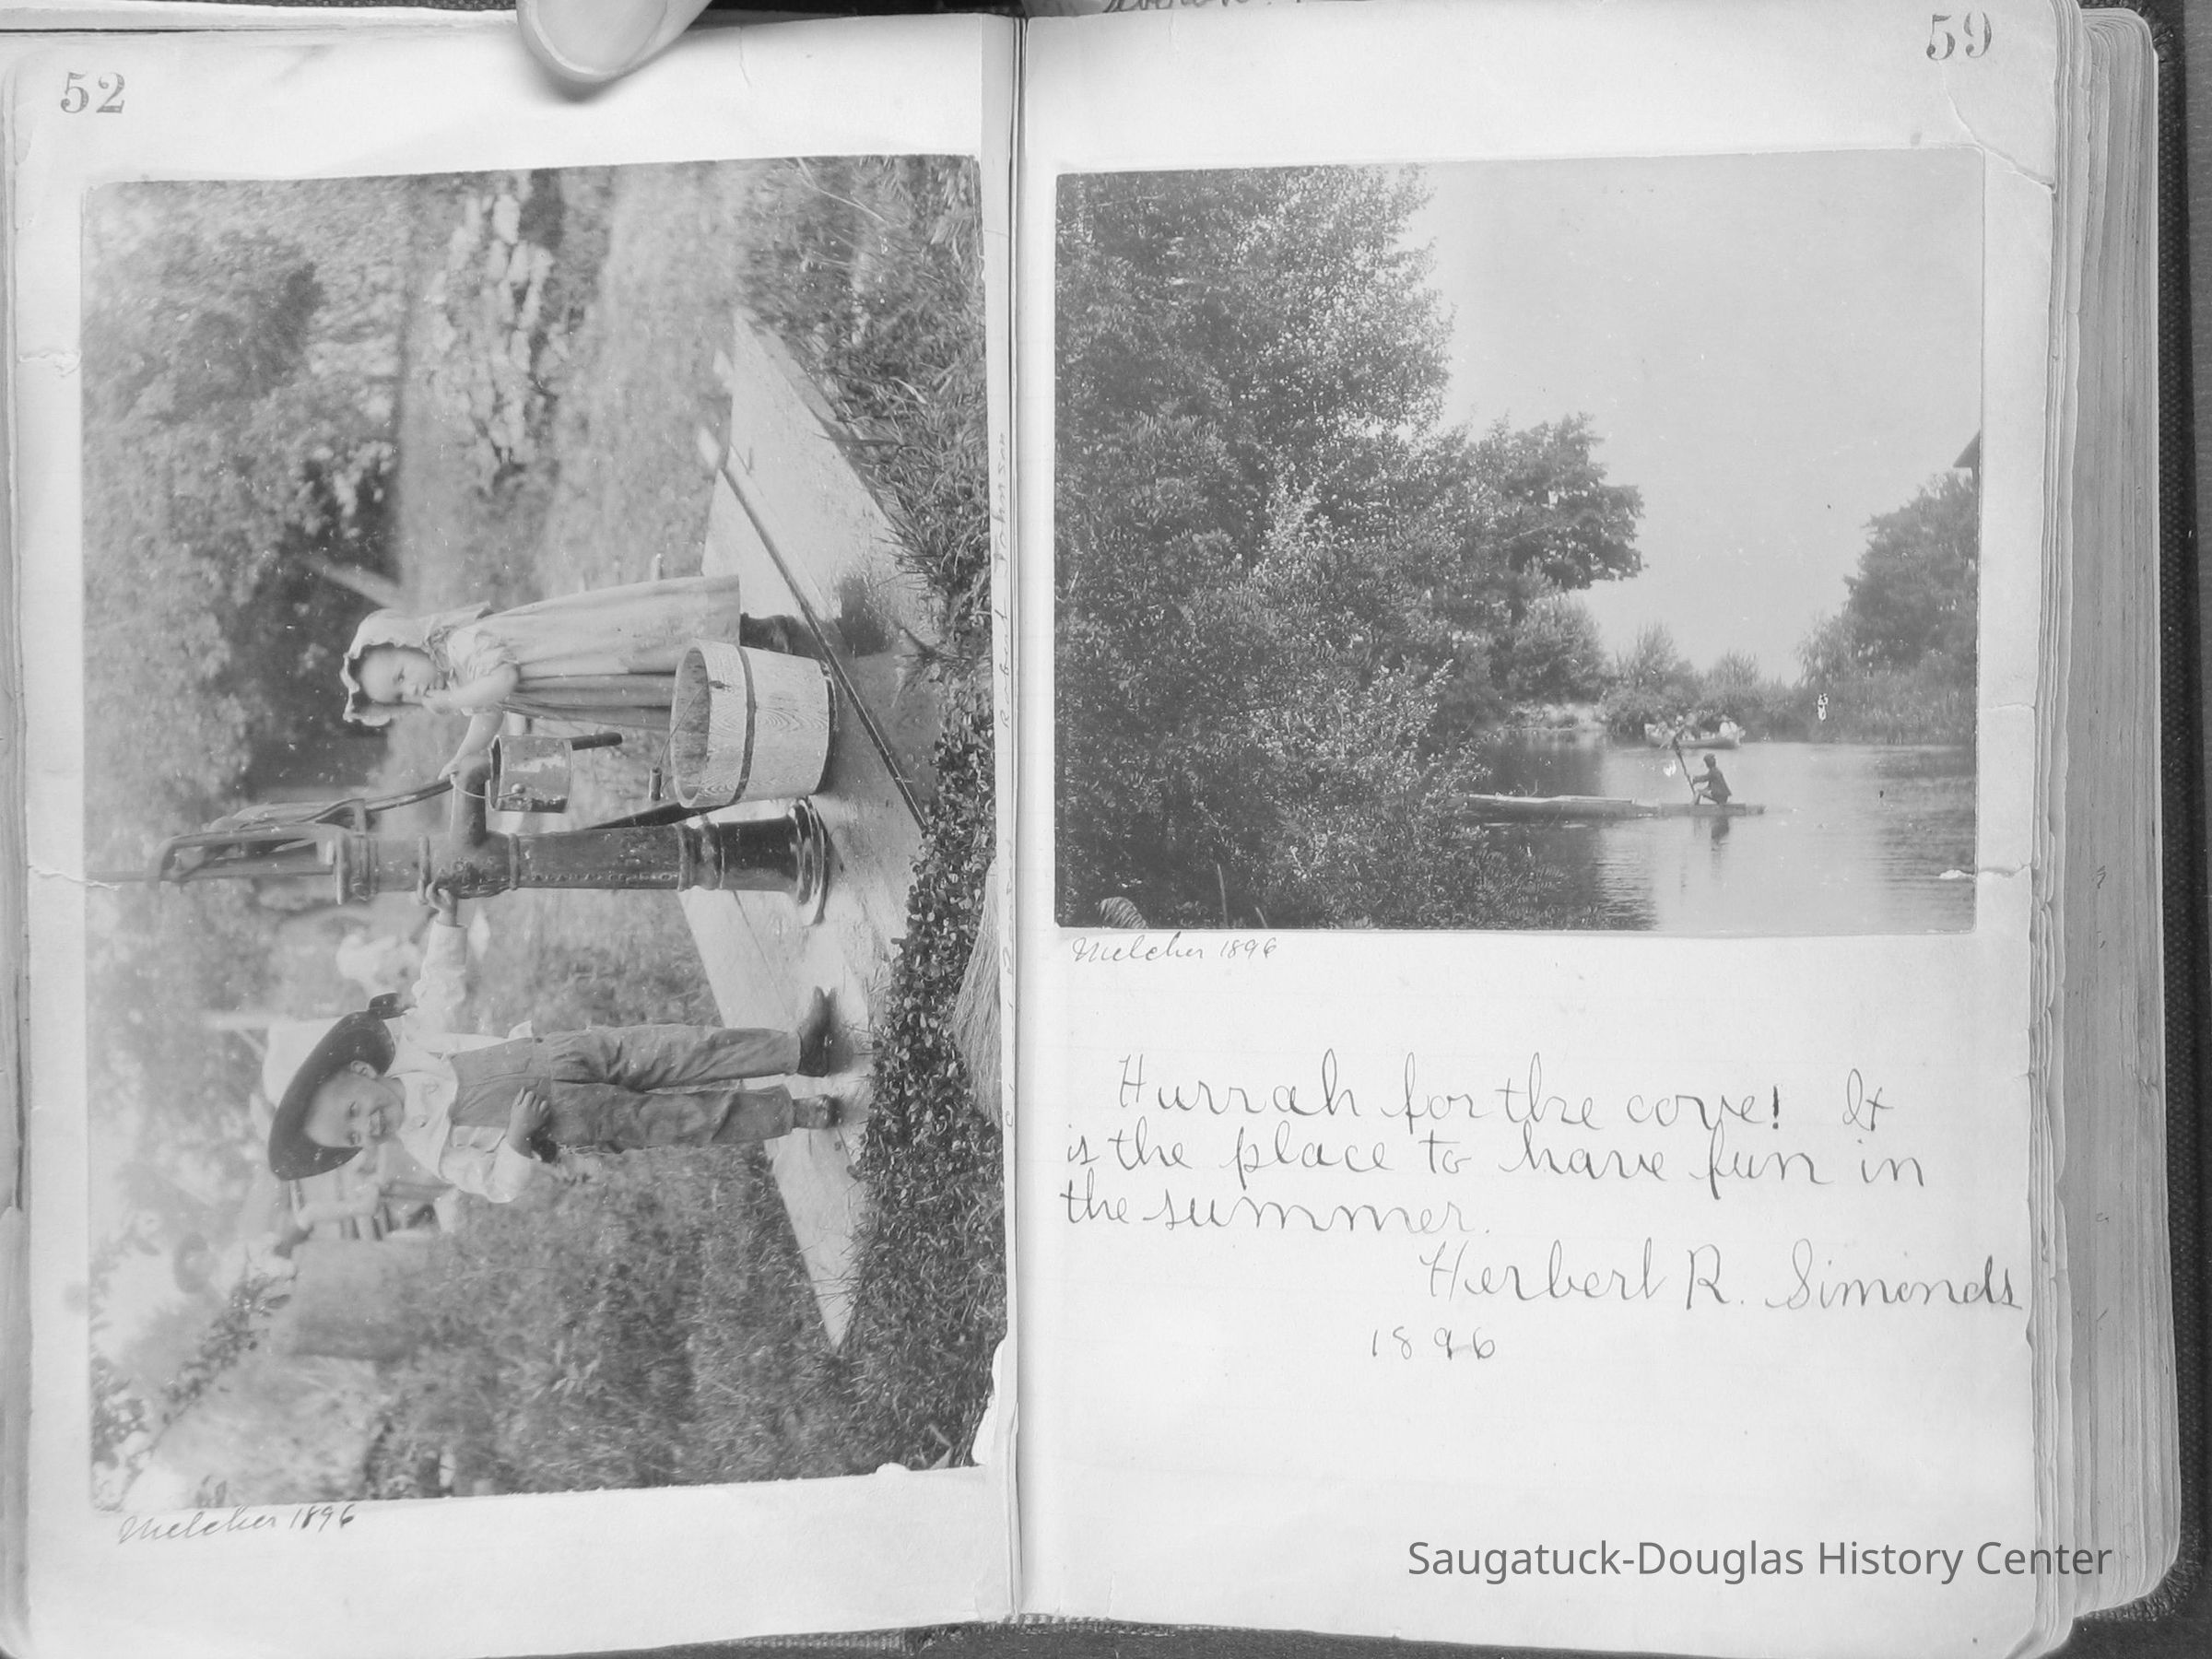 52
Melcher 1896
Robert Johnson
59
Melcher 1896
Hurrah for the cove! It
is the place to have fun in
the summer.
Herbert R. Simonds
1896
Saugatuck-Douglas History Center